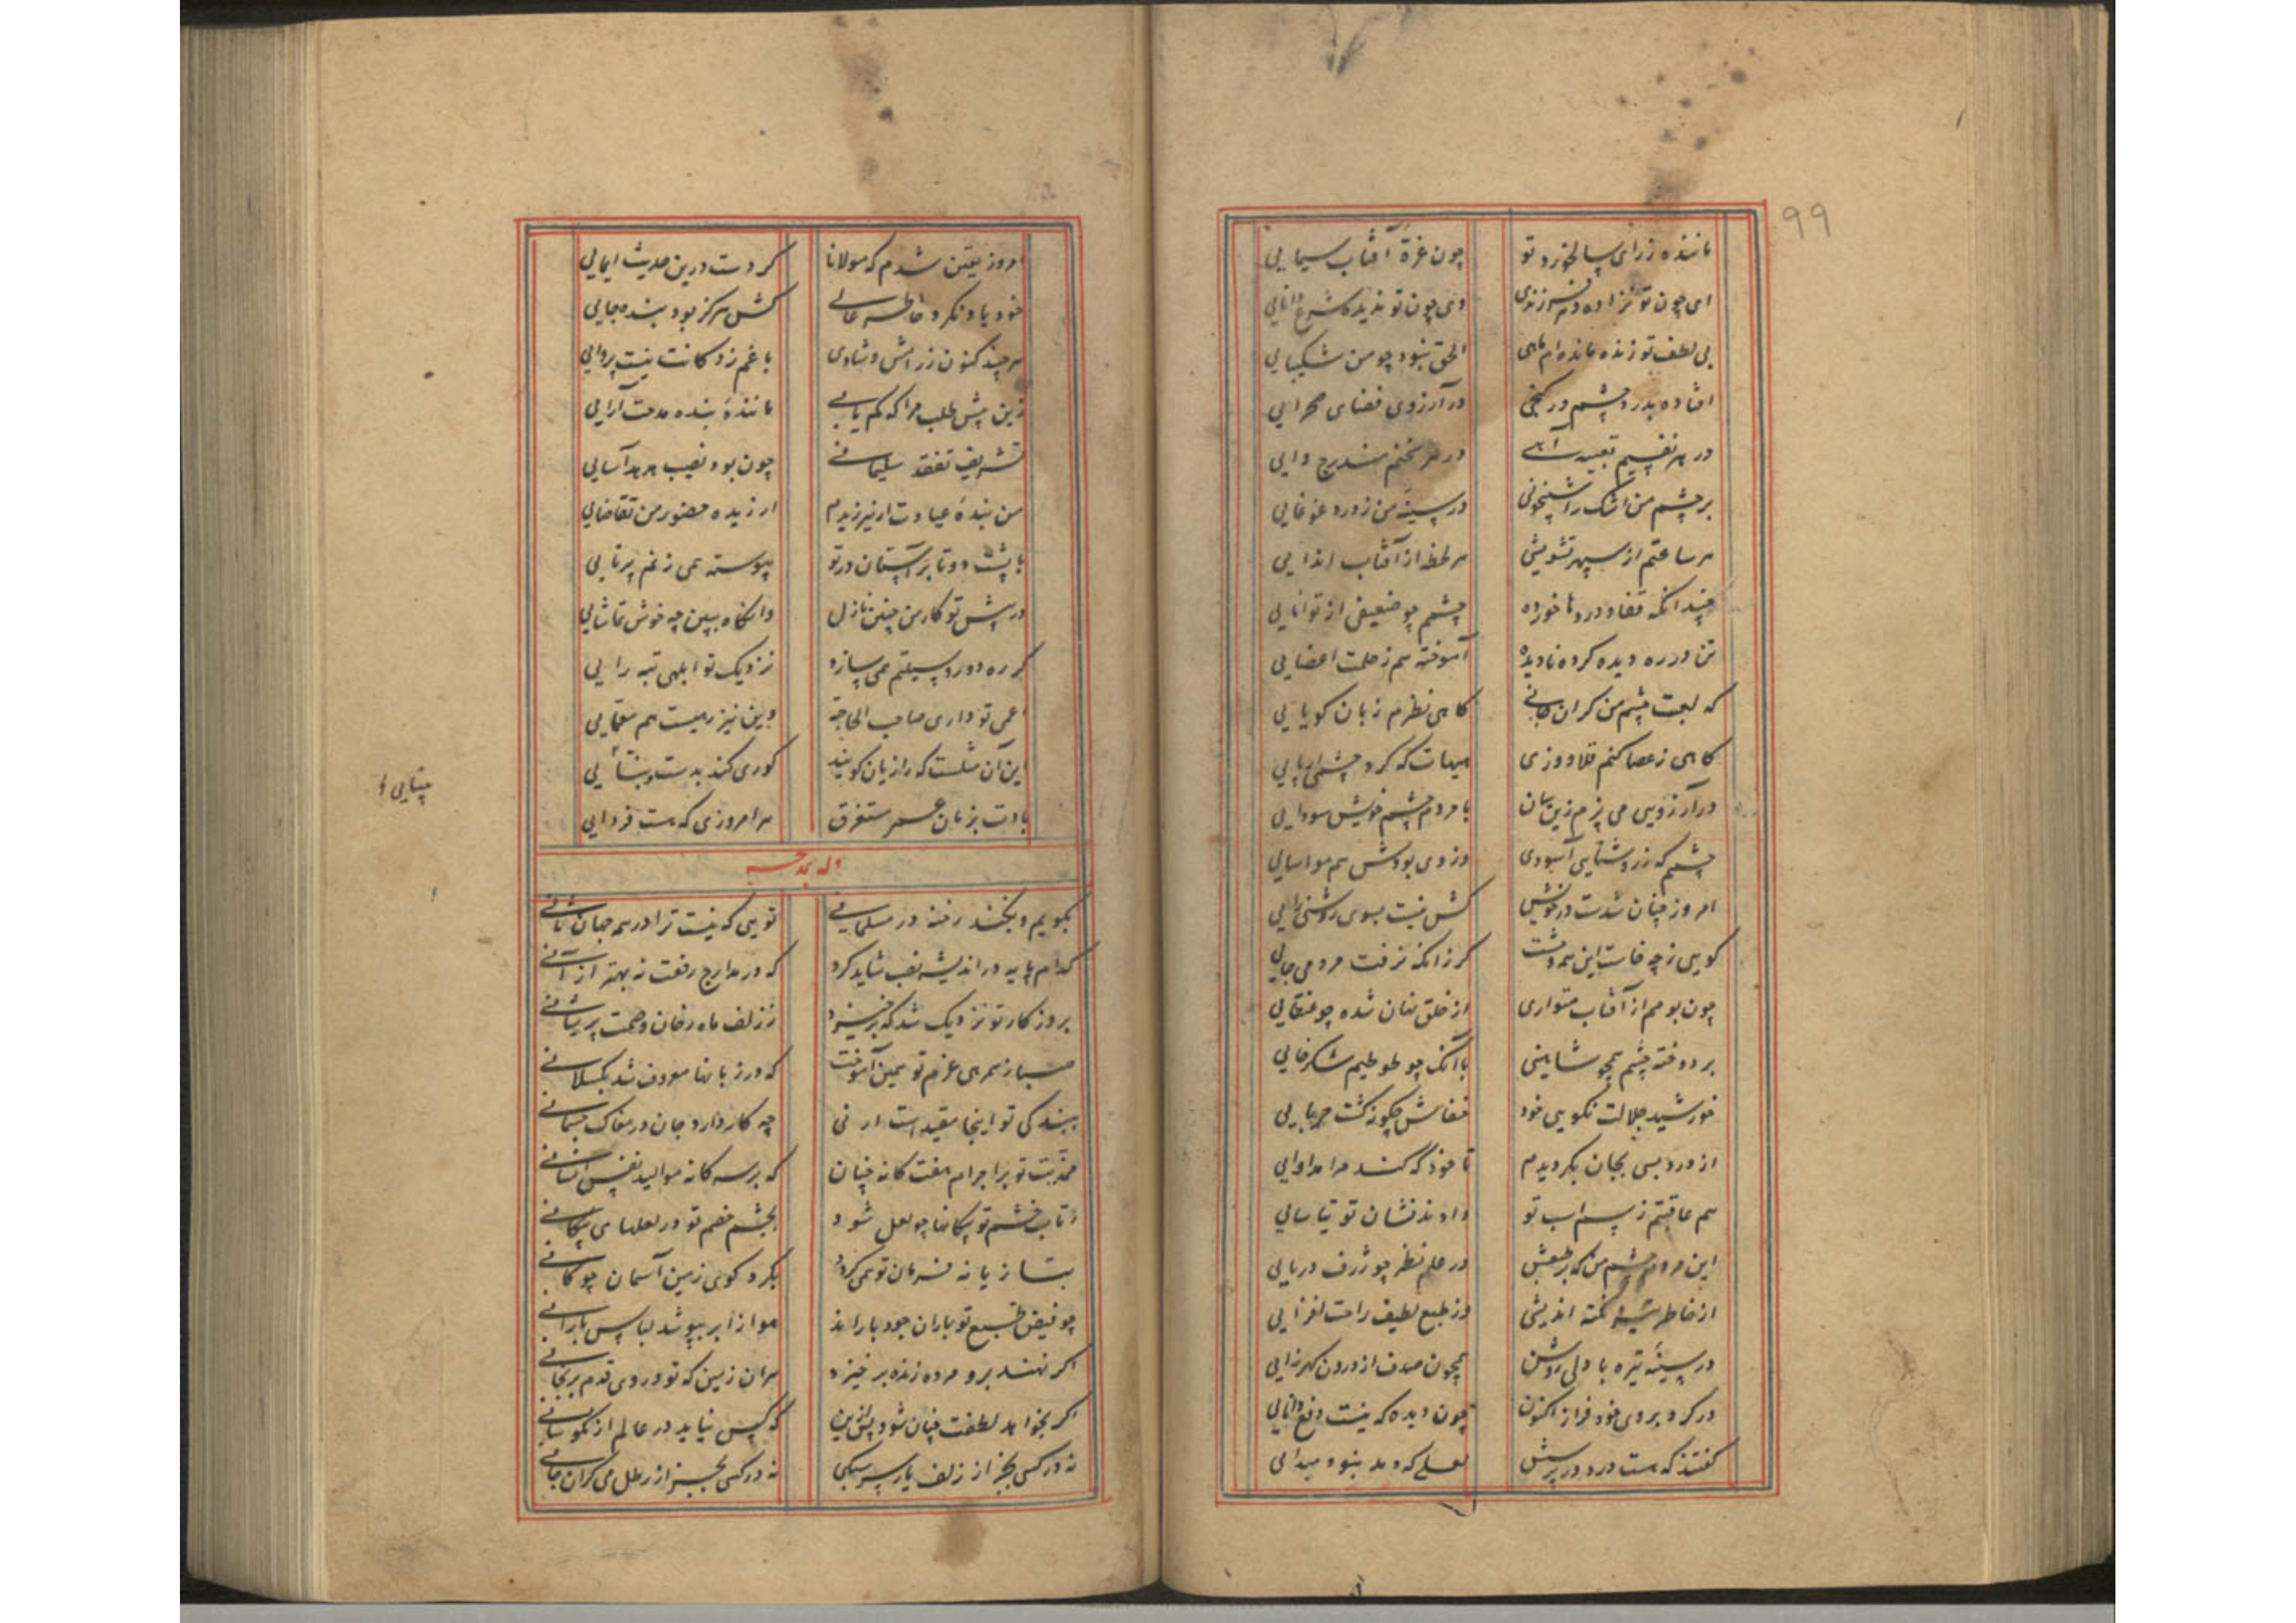 99
ماننده زرای سالخورد تو چون غرة آفتاب سیمایی
ای چون تو نزاده دهر فرزندی وی چون تو ندیده شرع دانایی
بی لطف تو زنده مانده ام ماهی الحق نبود چو من شکیبایی
افتاده بدرد چشم در کنجی در آرزوی فضای صحرایی
در هر نفسیم تعبیه آهی در هر سخنم مندرج وایی
بر چشم من اشک را شبیخونی در سینه من ز درد غوغایی
هر ساعتم از سپهر تشویشی هر لحظه از آفتاب ایذایی
چندانکه قفا و درد ناخورده چشم چو ضعیفی از توانایی
تن در ره دیده کرده نادیده آموخته هم زحلت اعضایی
که لعبت چشم من کران جانی کاهی نظرم زبان کویایی
کاهی ز عصا کنم قلاووزی هیهات که کرد چشم را پایی
در آرزویی می پزم زین سان با مردم چشم خویش سودایی
چشمم که ز روشنایی آسودی وز وی بودش هم مواسایی
امروز چنان شدست در خویش کش نیست بسوی روشنی رایی
کویی ز چه خاست این همه وحشت کر زانکه نرفت مردمی جایی
چون بومم از آفتاب متواری از خلق نهان شده چو عنقایی
بر دوخته چشم همچو شاهینی با آنک چو طوطیم شکرخایی
خورشید جلالت نکویی خود خفاش چکونه کشت حربایی
از درد بسی بجان بکردیدم تا خود که کند مرا مداوایی
هم عاقبتم ز سر اب تو دادند نشان توتیاسایی
این مردم چشم من که بر طبعش در علم نظر چو ژرف دریایی
از خاطر نکته اندیشی وز طبع لطیف راحت افزایی
در سینه تیره با دلی روشن همچون صدف از درون کهرزایی
در کرد بروی خود فراز اکنون چون دیده که نیست دفع دانایی
کفتند که هست درد در پرسش لعلی که دهد نبود مبدایی
امروز یقین شدم که مولانا کردست درین حدیث ایمایی
خود یاد نکرد خاطر عالی کش هرکز بود بنده جایی
هر چند کنون ز رامش و شادی با غم زدکانت نیست پروایی
زین بیش طلب مرا که کم یابی ماننده بنده مدحت آرایی
تشریف تفقد سلیمانی چون بود نصیب هدهد آسایی
من بنده عیادت ار نیرزیدم ارزیده حضور من تقاضایی
با پشت دوتا بر آستان در تو پیوسته همی زنم پرتایی
در پیش تو کار من چنین نازل وانکاه ببین چه خوش تماشایی
کر ره دور و سیلتم همی سازد نزدیک تو ابلهی تبه رایی
اعمی تو داری صاحب الحاجة وین نیز رهیست هم معمایی
این آن مثلست که رازیان کویند کوری کند بدست و بینایی
بادت بزمان عمر مستغرق هر امروزی که هست فردایی
بینایی و
وله یمدحه
بکویم و بکنند رخنه در مسلمانی تویی که نیست ترا در همه جهان ثانی
کدام پایه در اندیشه نصب شاید کرد که در مدارج رفعت نه بهتر از آنی
بروزکار تو نزدیک شد که برخیزد ز زلف ماه رخان وصمت پریشانی
صبا ز همرهی عزم تو همین آموخت که در زبانها معروف شد بکسلانی
ببندکی تو اینجا مقیدست ار نی چه کار دارد جان در مغاک جسمانی
محدبت تو بر اجرام هفت کانه چنان که بر سه کانه موالید نفس انسانی
ز تاب خشم تو پیکانها چو لعل شود بچشم خصم تو در لعلهای پیکانی
بتازیانه فرمان تو همی کردد بکرد کوی زمین آسمان چوکانی
چو فیض طبع تو باران جود باراند هوا ز ابر بپوشد لباس بارانی
اکر نهند برو مرده زنده برخیزد هران زمین که تو در وی قدم برنجانی
اکر بخواهد لطفت چنان شود پس ازین که کس نیابد در عالم از نکوسانی
نه در کسی بجز از زلف یار سرسبکی نه در کسی بجز از رطل می کران جانی